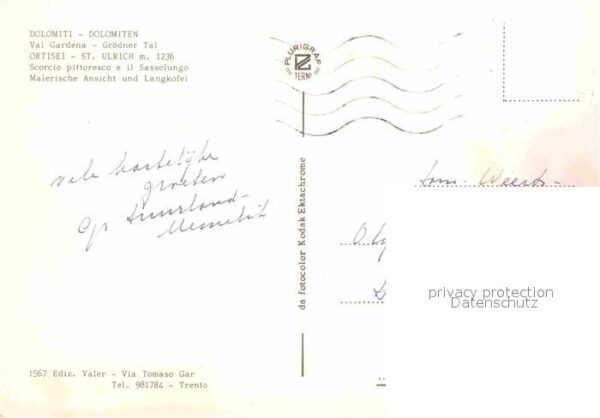 DOLOMITI - DOLOMITEN
Val Gardena - Grödner Tal
ORTISEI - ST. ULRICH m. 1236
Scorcio pittoresco e il Sassolungo
Malerische Ansicht und Langkofel
PLURIGRAF
TERNI
da fotocolor Kodak Ektachrome
vele hartelijke
groeten
fam. Weerts-
privacy protection
Datenschutz
1567 Ediz. Valer - Via Tomaso Gar
Tel. 981784 - Trento